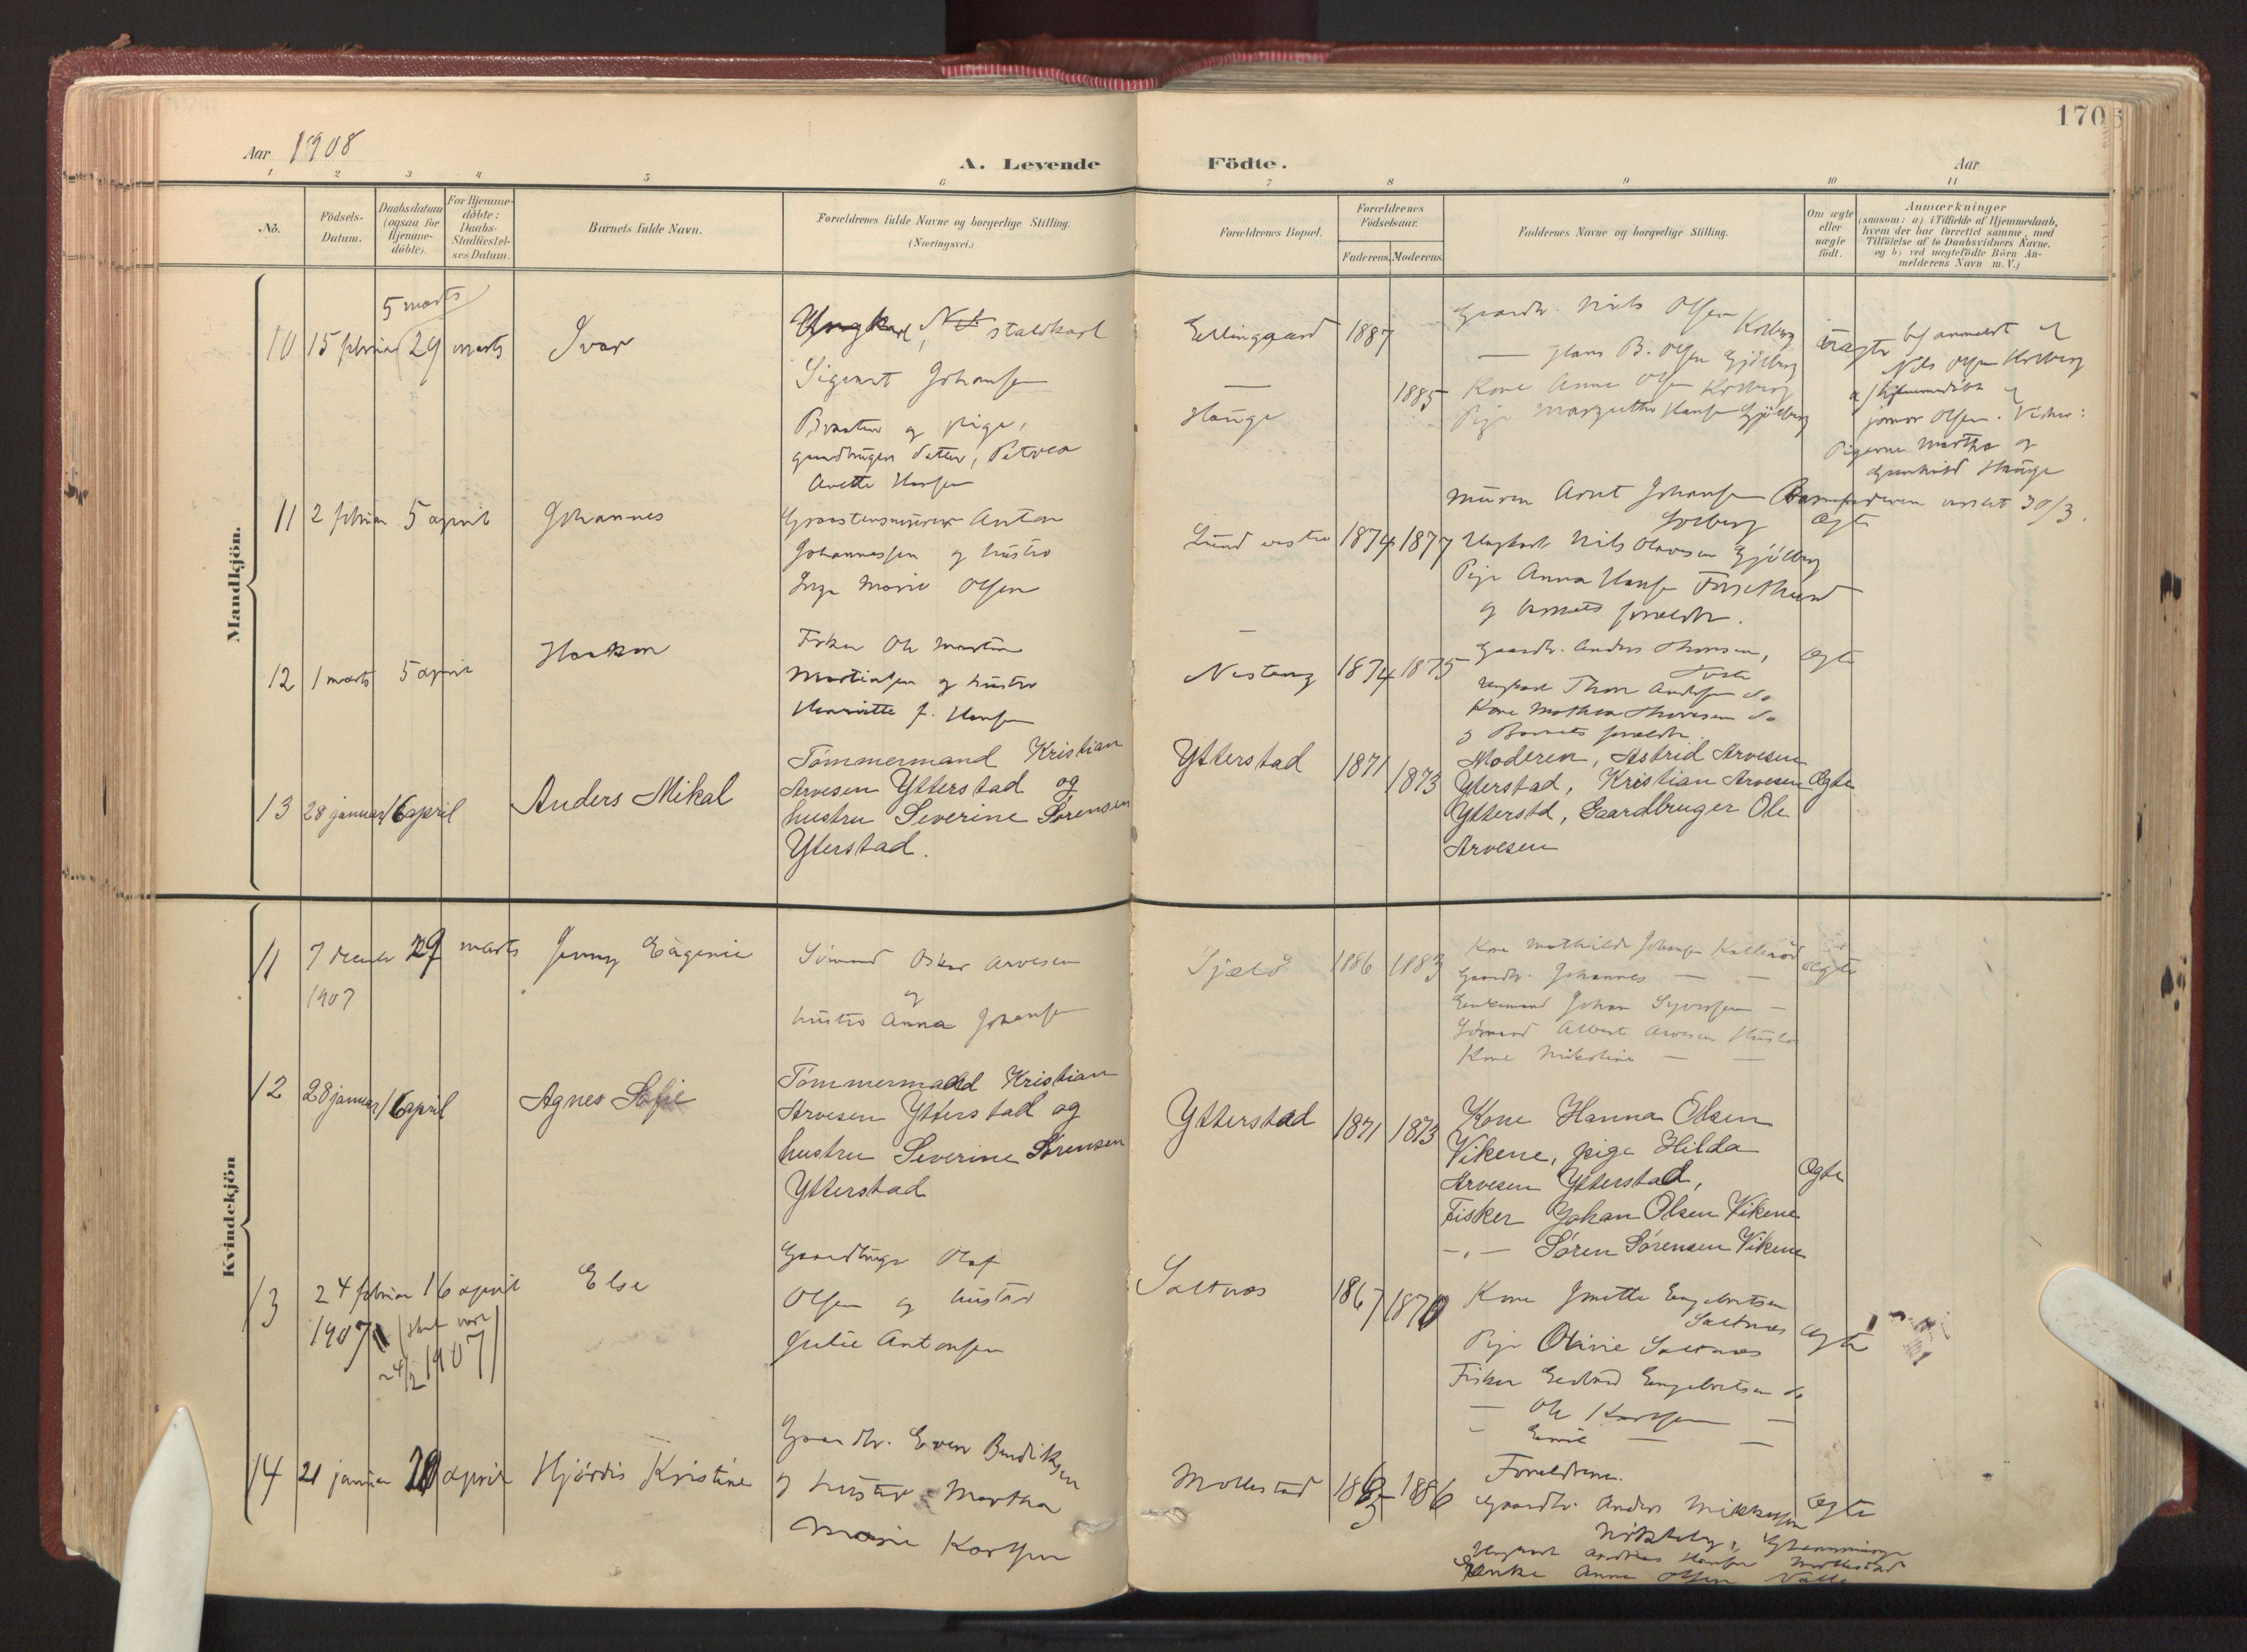 170
Aar 1908
A. Levende Födte.
Aar
1 2 3 4 5 6 7 8 9 10 11
No.
Födsels-
Datum.
Daabsdatum
(ogsaa for
Hjemme-
döbte).
For Hjemme-
döbte:
Daabs-
Stadfæstel-
ses Datum.
Barnets fulde Navn.
Forældrenes fulde Navne og borgerlige Stilling.
(Næringsvei.)
Forældrenes Bopæl.
Forældrenes
Födselsaar.
Faderens. Moderens.
Faddernes Navne og borgerlige Stilling.
Om ægte
eller
uægte
födt.
Anmærkninger
(saasom: a) i Tilfælde af Hjemmedaab,
hvem der har forrettet samme, med
Tilföielse af to Daabsvidners Navne.
og b) ved uægtefödte Börn An-
melderens Navn m. V.)
Mandkjön.
5 marts
10 15 februar 29 marts Ivar
Ungkarl, staldkarl
Sigvart Johansen
Braaten og pige,
gaardbruger datter, Petrea
Anette Hansen
Ellingaard 1887
— 1885
Hauge
Gaardbr. Nils Olsen
Kolberg
— Hans B. Olsen Gjölberg
Kone Anne Olsen Kolberg
Pige Margrethe Hansen Gjölberg
uægte
b) anmeldt af
Nils Olsen Kolberg
a) hjemmedöbt af
jomor Olsen. Vidner:
Pigerne Martha og
Gunhild Hauge
Barnefaderen
30/3.
11 2 februar 5 april Johannes
Graastensmurer Anton
Johannessen og hustru
Inga Marie Olsen
Lund vestre 1874 1877
Murer Arnt Johansen
Solberg
Ungkarl Nils Olavesen Gjölberg
Pige Anna Hansen
og barnets foreldre.
Ægte
12 1 marts 5 april Haakon
Fisker Ole Martin
Martinsen og hustru
Henriette f. Hansen
Nestang 1874 1875
Gaardbr. Anders Thoresen,
Ungkarl Thore Andersen do
Kone Mathea Thoresen do
og Barnets foreldre.
Ægte
13 28 januar 16 april Anders Mikal
Tömmermand Kristian
Arvesen Ytterstad og
hustru Severine Sørensen
Yterstad.
Ytterstad 1871 1873
Moderen, Astrid Arvesen
Yterstad, Kristian Arvesen
Ytterstd, Gaardbruger Ole
Arvesen
Ægte
Kvindekjön
11 7 december 29 marts Jenny Eugenie
1907
Sömand Oskar Arvesen
og
hustru Anna Johansen
Sjælö 1886 1883
Kone Mathilde Johansen Kalleröd
Gaardbr. Johannes — —
Enkemand Johan Syversen —
Sömand Albert Arvesen
Kone Nikoline — —
Ægte
12 28 januar 16 april Agnes Sofie
Tömmermand Kristian
Arvesen Ytterstad og
hustru Severine Sørensen
Ytterstad
Ytterstad 1871 1873
Kone Hanna Olsen
Vikene, pige Hilda
Arvesen Ytterstad,
Fisker Johan Olsen Vikene
-,- Søren Sørensen Vikene
Ægte
13 24 februar 16 april Else
1907 (skal være
24/2 1907)
Gaardbruger Olaf
Olsen og hustru
Julie Antonsen
Saltnes 1867 1870
Kone Josette Engebretsen
Saltnes
Pige Olivie Saltnes
Fisker Edvard Engebretsen do
— Ole Karlsen —
- Emil — —
Ægte
14 21 januar 20 april Hjördis Kristine
Gaardbr. Even Bendiksen
og hustru Martha
Marie Karlsen
Mollestad 1863 1886
Foreldrene.
Gaardbr. Anders Mikkelsen
Ungkarl Andreas Hansen Mollestad
Enke Anna Olsen
Ægte